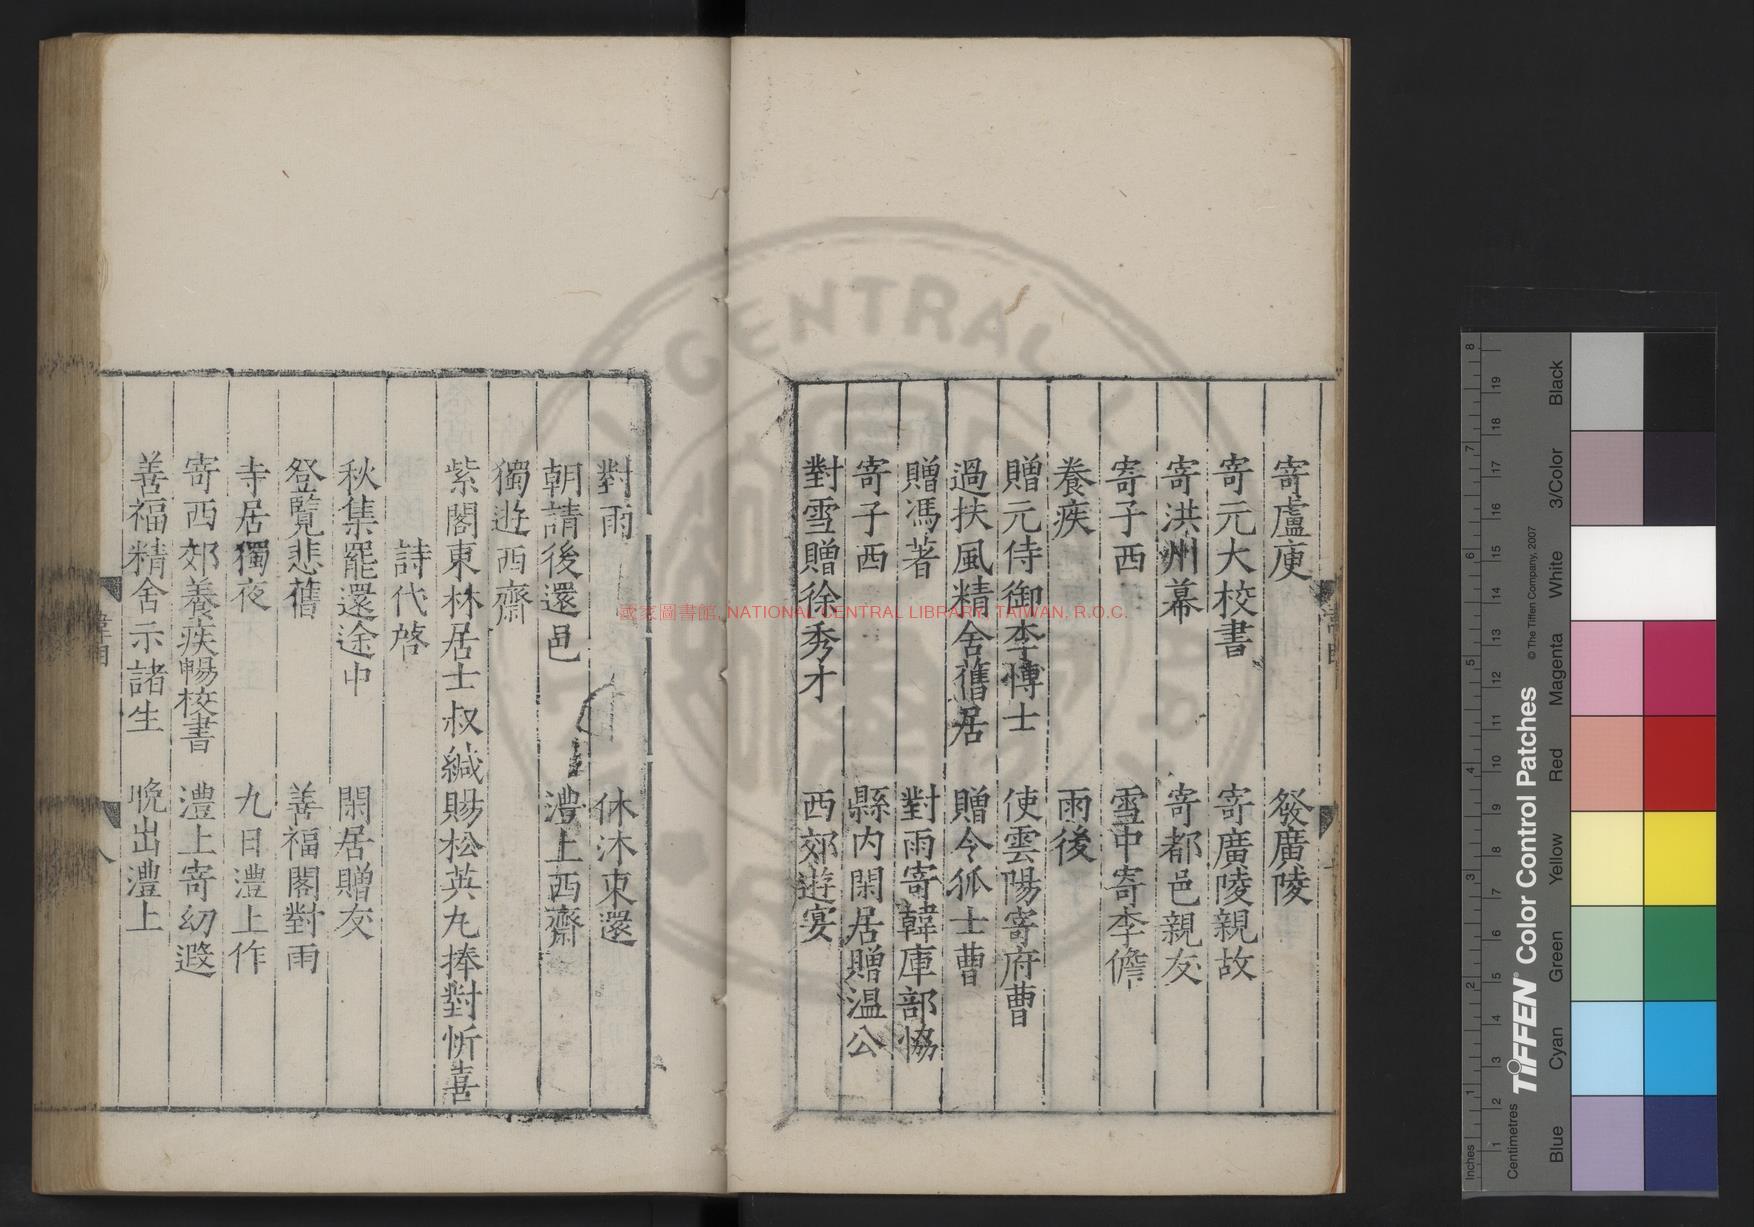 寄盧庾　發廣陵
寄元大校書　寄廣陵親故
寄洪州幕　寄都邑親友
寄子西　雪中寄李儋
養疾　雨後
贈元侍御李博士　使雲陽寄府曹
過扶風精舍舊居　贈令狐士曹
贈馮著　對雨寄韓庫部協
寄子西　縣内閑居贈温公
對雪贈徐秀才　西郊遊宴
對雨　休沐東還
朝請後還邑　灃上西齋
獨遊西齋
紫閣東林居士叔緘賜松英丸捧對忻喜
詩代啓
秋集罷還途中　閑居贈友
登覽悲舊　善福閣對雨
寺居獨夜　九日灃上作
寄西郊養疾暢校書　灃上寄幼遐
善福精舍示諸生　晩出灃上
八
國家圖書館, NATIONAL CENTRAL LIBRARY, TAIWAN, R.O.C.
CENTRAL LI
Inches
1 2 3 4 5 6 7 8
Centimetres
1 2 3 4 5 6 7 8 9 10 11 12 13 14 15 16 17 18 19
TIFFEN® Color Control Patches
© The Tiffen Company, 2007
Blue
Cyan
Green
Yellow
Red
Magenta
White
3/Color
Black